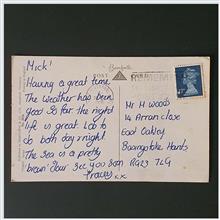 Mick!
Having a great time.
The Weather has been
good so far. the night
life is great. Lots to
do both day & night
The Sea is a pretty
brown! Dear See you Soon
Tracey xx
Bamforth
POST
Mr M Woods
14 Arran close
East Oakley
Basingstoke Hants
RG23 7LG